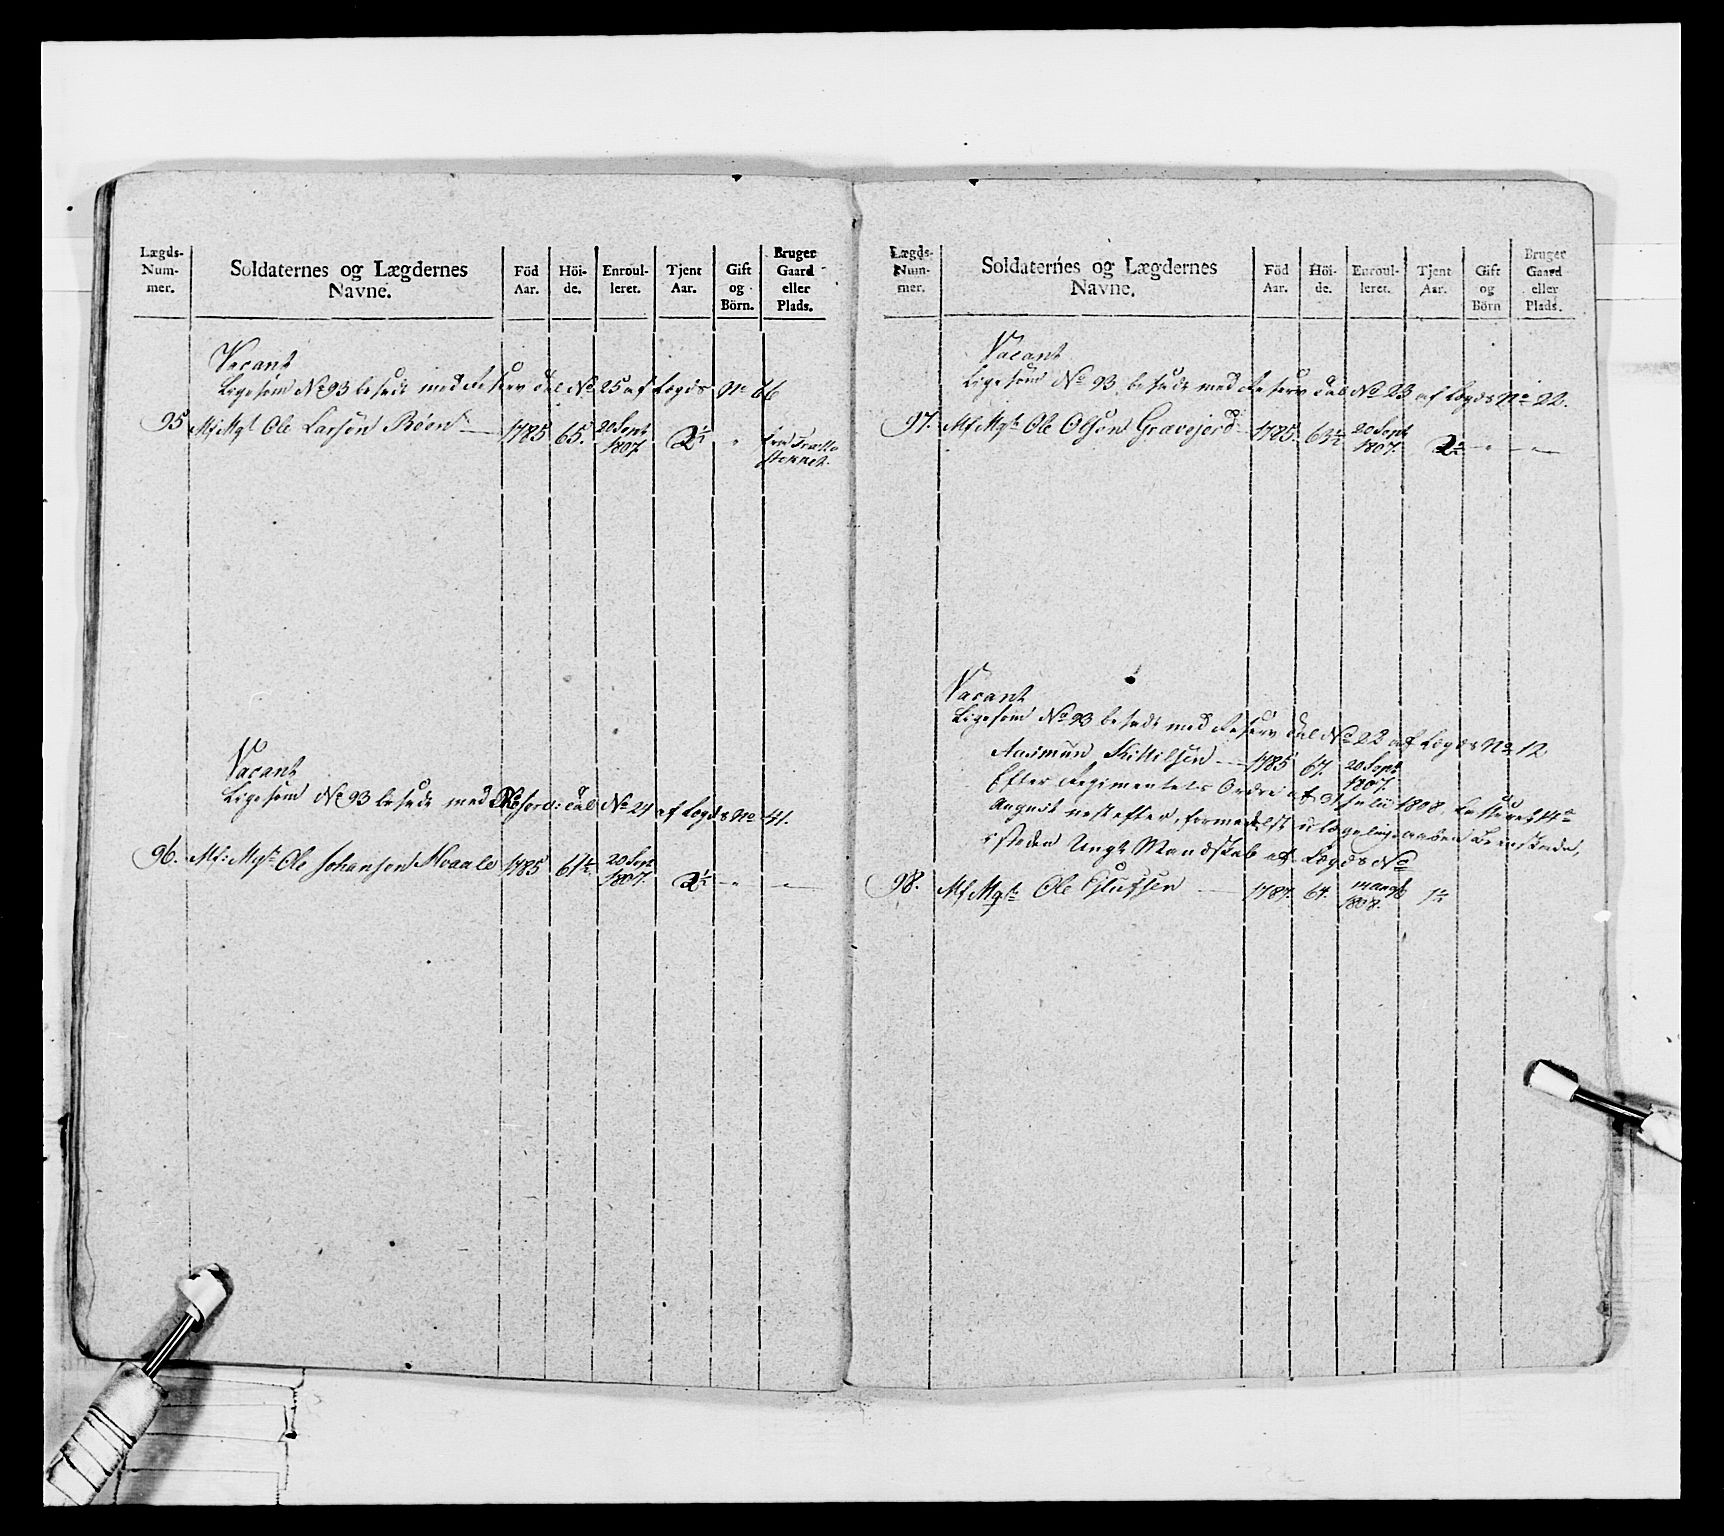 Lægds-
Num-
mer.
Soldaternes og Lægdernes
Navne.
Föd
Aar.
Höi-
de.
Enroul-
leret.
Tjent
Aar.
Gift
og
Börn.
Bruger
Gaard
eller
Plads.
Vacant
Ligesom No 93 besadt med Reserv Cal No 25 af Lægds No 66
95 Mf Mgt Ole Larsøn Röen 1785 65. 20 Sept 1807. 2½ "
Vacant
Ligesom No 93 besadt med Reserv: Cal No 21 af Lægds No 41.
96. Mf: Mgt Ole Johansen Moaale 1785 67½. 20 Sept 1807. 2½ "
Lægds-
Num-
mer.
Soldaternes og Lægdernes
Navne.
Föd
Aar.
Höi-
de.
Enroul-
leret.
Tjent
Aar.
Gift
og
Börn
Bruger
Gaard
eller
Plads.
Vacant
Ligesom No 93 besadt med Reserv Cal No 23 af Lægds No 22.
97. Mf Mgt Ole Olsøn Gravejord 1785. 63½ 20 Sept 1807. 2½ " "
Vacant
Ligesom No 93 besadt med Reserv Cal No 22 af Lægds No 12
Aasmun Kittilsen 1785 67. 20 Sept 1807.
Efter Regimentets Ordre af Julii 1808.
August næstefter, formedelst ulægelige aaben Beenskade,
isteden Ungt Mandskab af Lægds No
98. Mf Mgt Ole Eslufsen 1787. 64. 1808. 1½